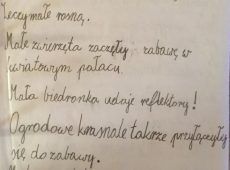 rzeczy małe rosną.
Małe zwierzęta zaczęły zabawę w
kwiatowym pałacu.
Mała biedronka udaje reflektory!
Ogrodowe krasnale takrze przyłączyły
się do zabawy.